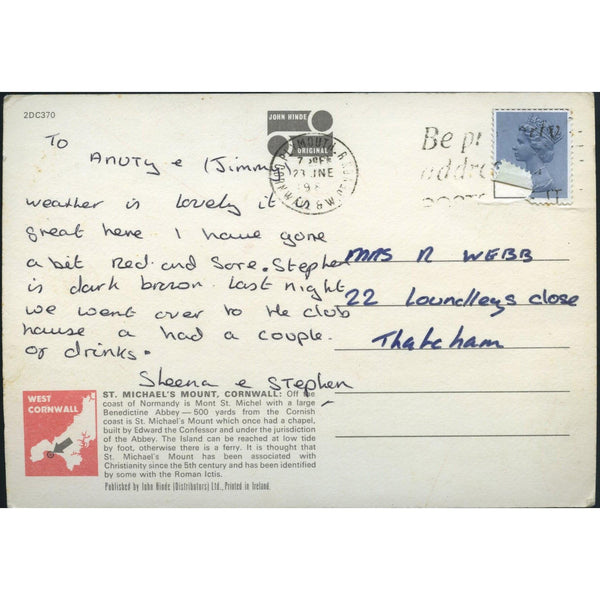 2DC370
JOHN HINDE
ORIGINAL
PLYMOUTH
23 JNE
Be
addre
To
Anuty e (Jimmy)
weather is lovely it
great here I have gone
a bit Red and Sore. Stephen
is dark brown. last night
we went over to the club
hause a had a couple
of drinks.
Sheena e Stephen
MRS R WEBB
22 Loundleys close
Thatcham
WEST
CORNWALL
ST. MICHAEL'S MOUNT, CORNWALL: Off the
coast of Normandy is Mont St. Michel with a large
Benedictine Abbey — 500 yards from the Cornish
coast is St. Michael's Mount which once had a chapel,
built by Edward the Confessor and under the jurisdiction
of the Abbey. The Island can be reached at low tide
by foot, otherwise there is a ferry. It is thought that
St. Michael's Mount has been associated with
Christianity since the 5th century and has been identified
by some with the Roman Ictis.
Published by John Hinde (Distributors) Ltd., Printed in Ireland.